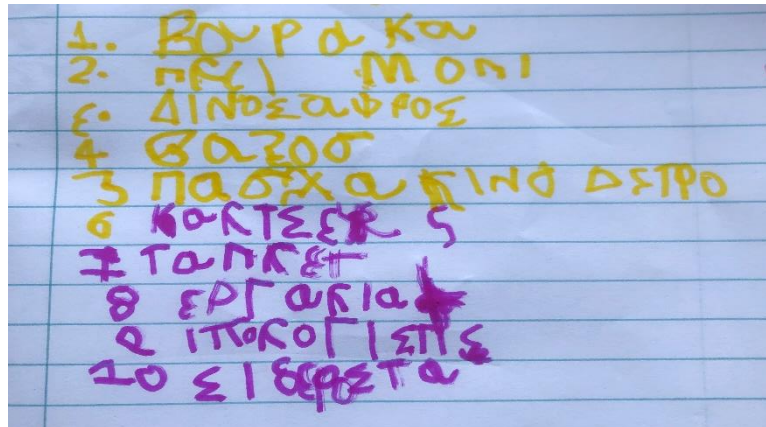 1. Βουρακα
2. ΜΟΠΙ
ε. ΔΙΝΟΣαΨΡΟΣ
4 Βαζοσ
3 πασχαΚΙΝΟ ΔΕΤΡΟ
6 ΚακΤΣΕ ς
7 ΤαΠΚΕΤ
8 εΡΓακια
9 ΙΠΟΚΟΓΙΣΠΣ
10 ΣΙδερΣΤα